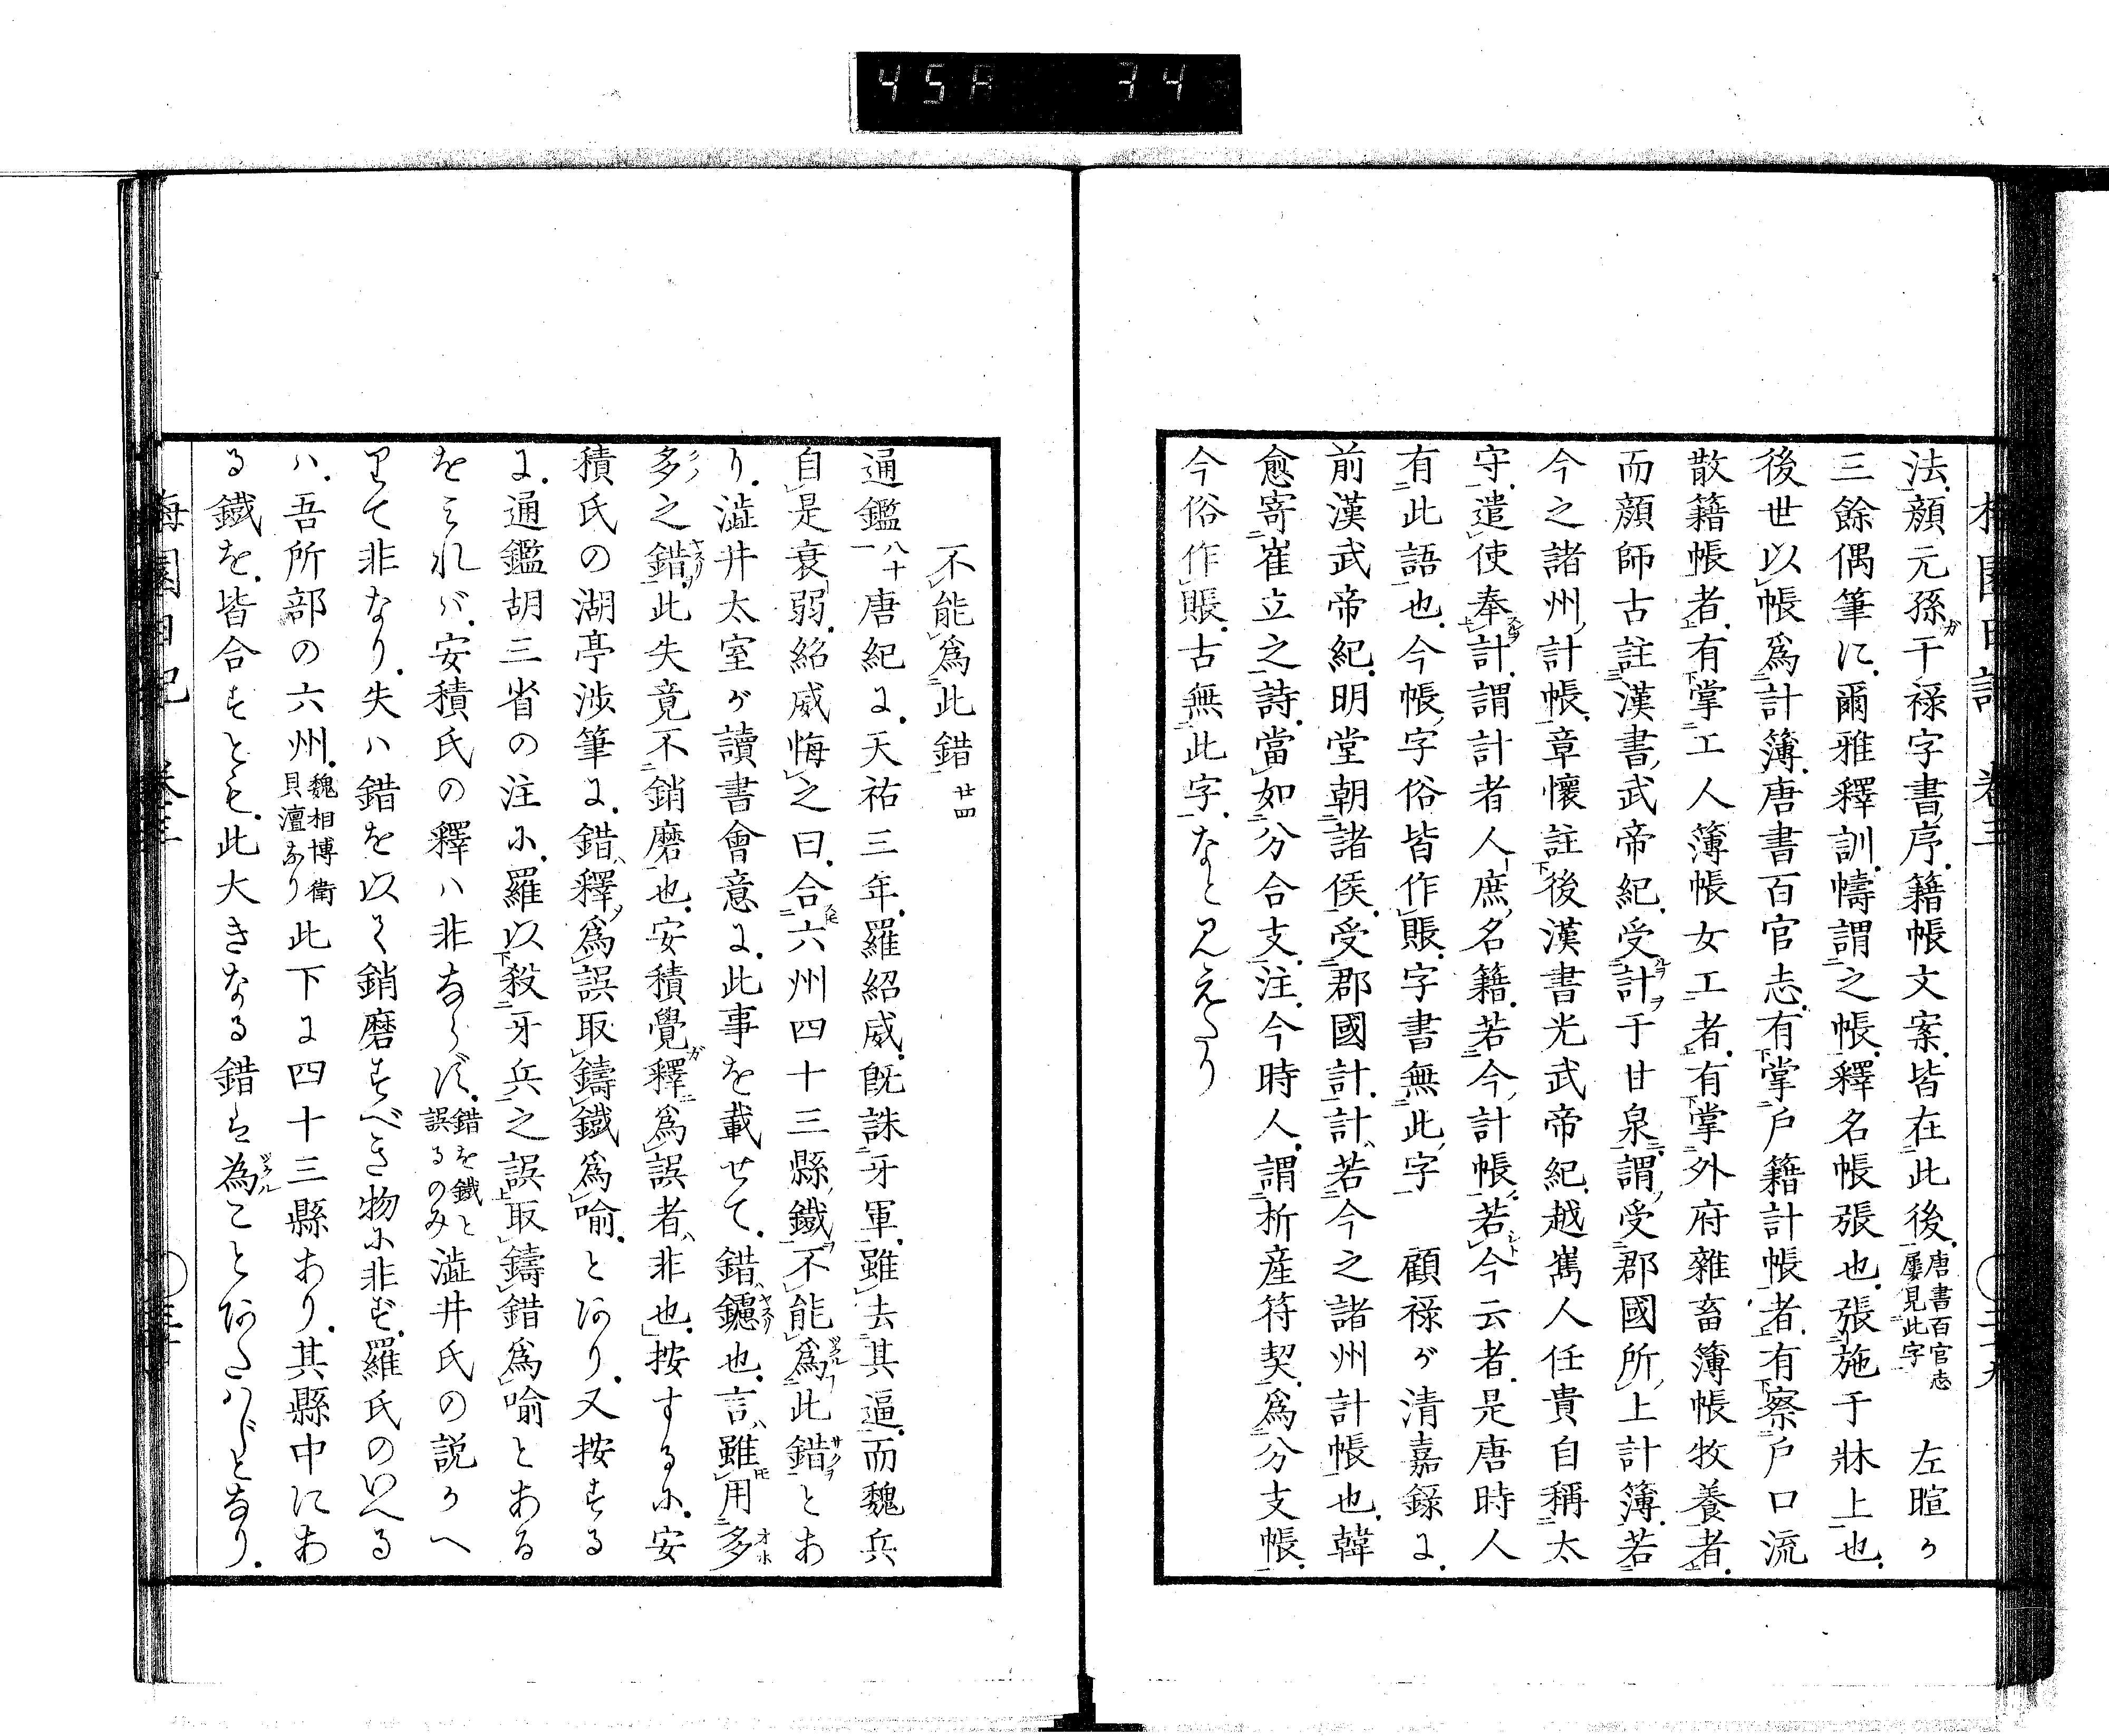 45A 34
梅園日記 卷三 二十九
法顔元孫ガ干祿字書序籍帳文案皆在此後唐書百官志屢見此字 左暄か
三餘偶筆に爾雅釋訓幬謂之帳釋名帳張也張施于牀上也
後世以帳爲計簿唐書百官志有掌戶籍計帳者有察戶口流
散籍帳者有掌工人簿帳女工者有掌外府雜畜簿帳牧養者
而顏師古註漢書武帝紀受計于甘泉謂受郡國所上計簿若
今之諸州計帳章懷註後漢書光武帝紀越嶲人任貴自稱太
守遣使奉計謂計者人庶名籍若今計帳若今云者是唐時人
有此語也今帳字俗皆作賬字書無此字 顧祿が清嘉錄に
前漢武帝紀明堂朝諸侯受郡國計計若今之諸州計帳也韓
愈寄崔立之詩當如分合支注今時人謂析産符契爲分支帳
今俗作賬古無此字なと見えたり
不能爲此錯 廿四
通鑑八十一唐紀に天祐三年羅紹威既誅牙軍雖去其逼而魏兵
自是衰弱紹威悔之曰合六州四十三縣鐵不能爲此錯とあ
り澁井太室が讀書會意に此事を載せて錯鑢也言雖用多
多之錯此失竟不銷磨也安積覺釋爲誤者非也按するに安
積氏の湖亭涉筆に錯釋爲誤取鑄鐵爲喻とあり又按する
に通鑑胡三省の注に羅以殺牙兵之誤取鑄錯爲喻とある
をみれバ安積氏の釋ハ非ならず錯を鐵と誤るのみ澁井氏の説かへ
りて非なり失ハ錯を以て銷磨すべき物に非ず羅氏のいへる
ハ吾所部の六州魏相博衞貝澶なり此下に四十三縣あり其縣中にあ
る鐵を皆合すとも此大きなる錯を為ことあたハじとなり
梅園日記 卷三